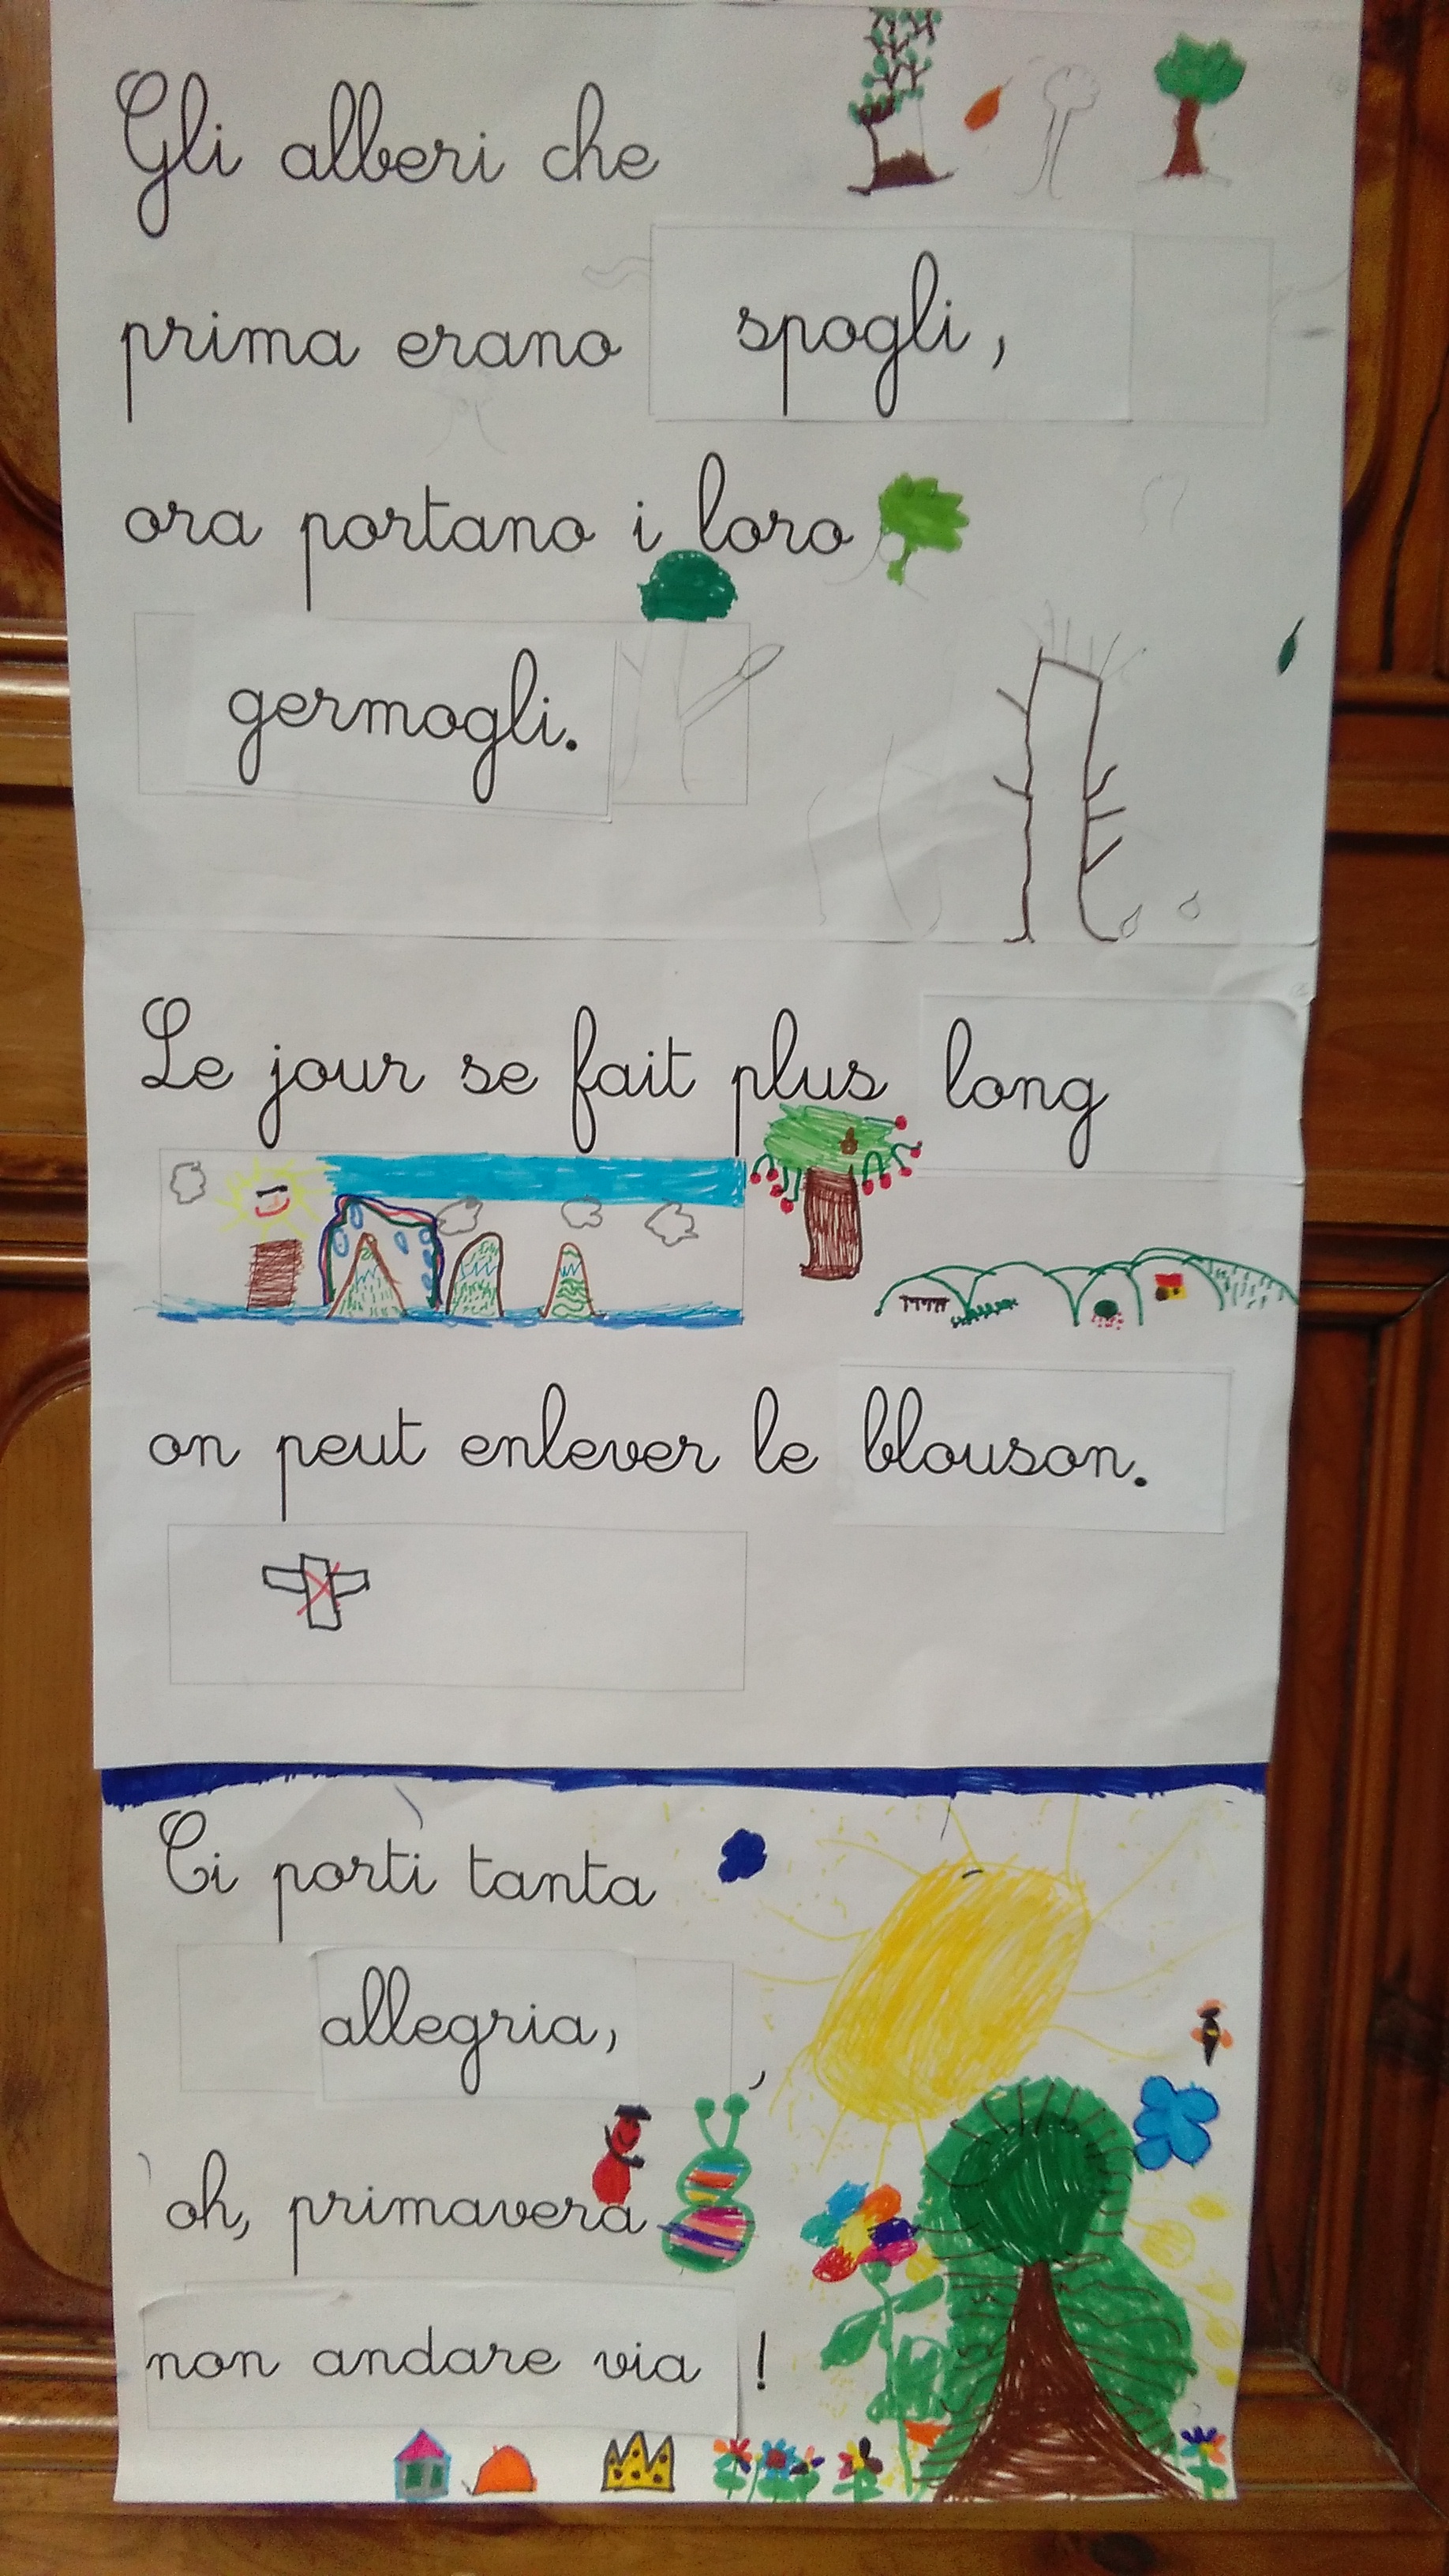 Gli alberi che
prima erano spogli,
ora portano i loro
germogli.
Le jour se fait plus long
on peut enlever le blouson.
Ci porti tanta
allegria, ,
oh, primavera
non andare via !